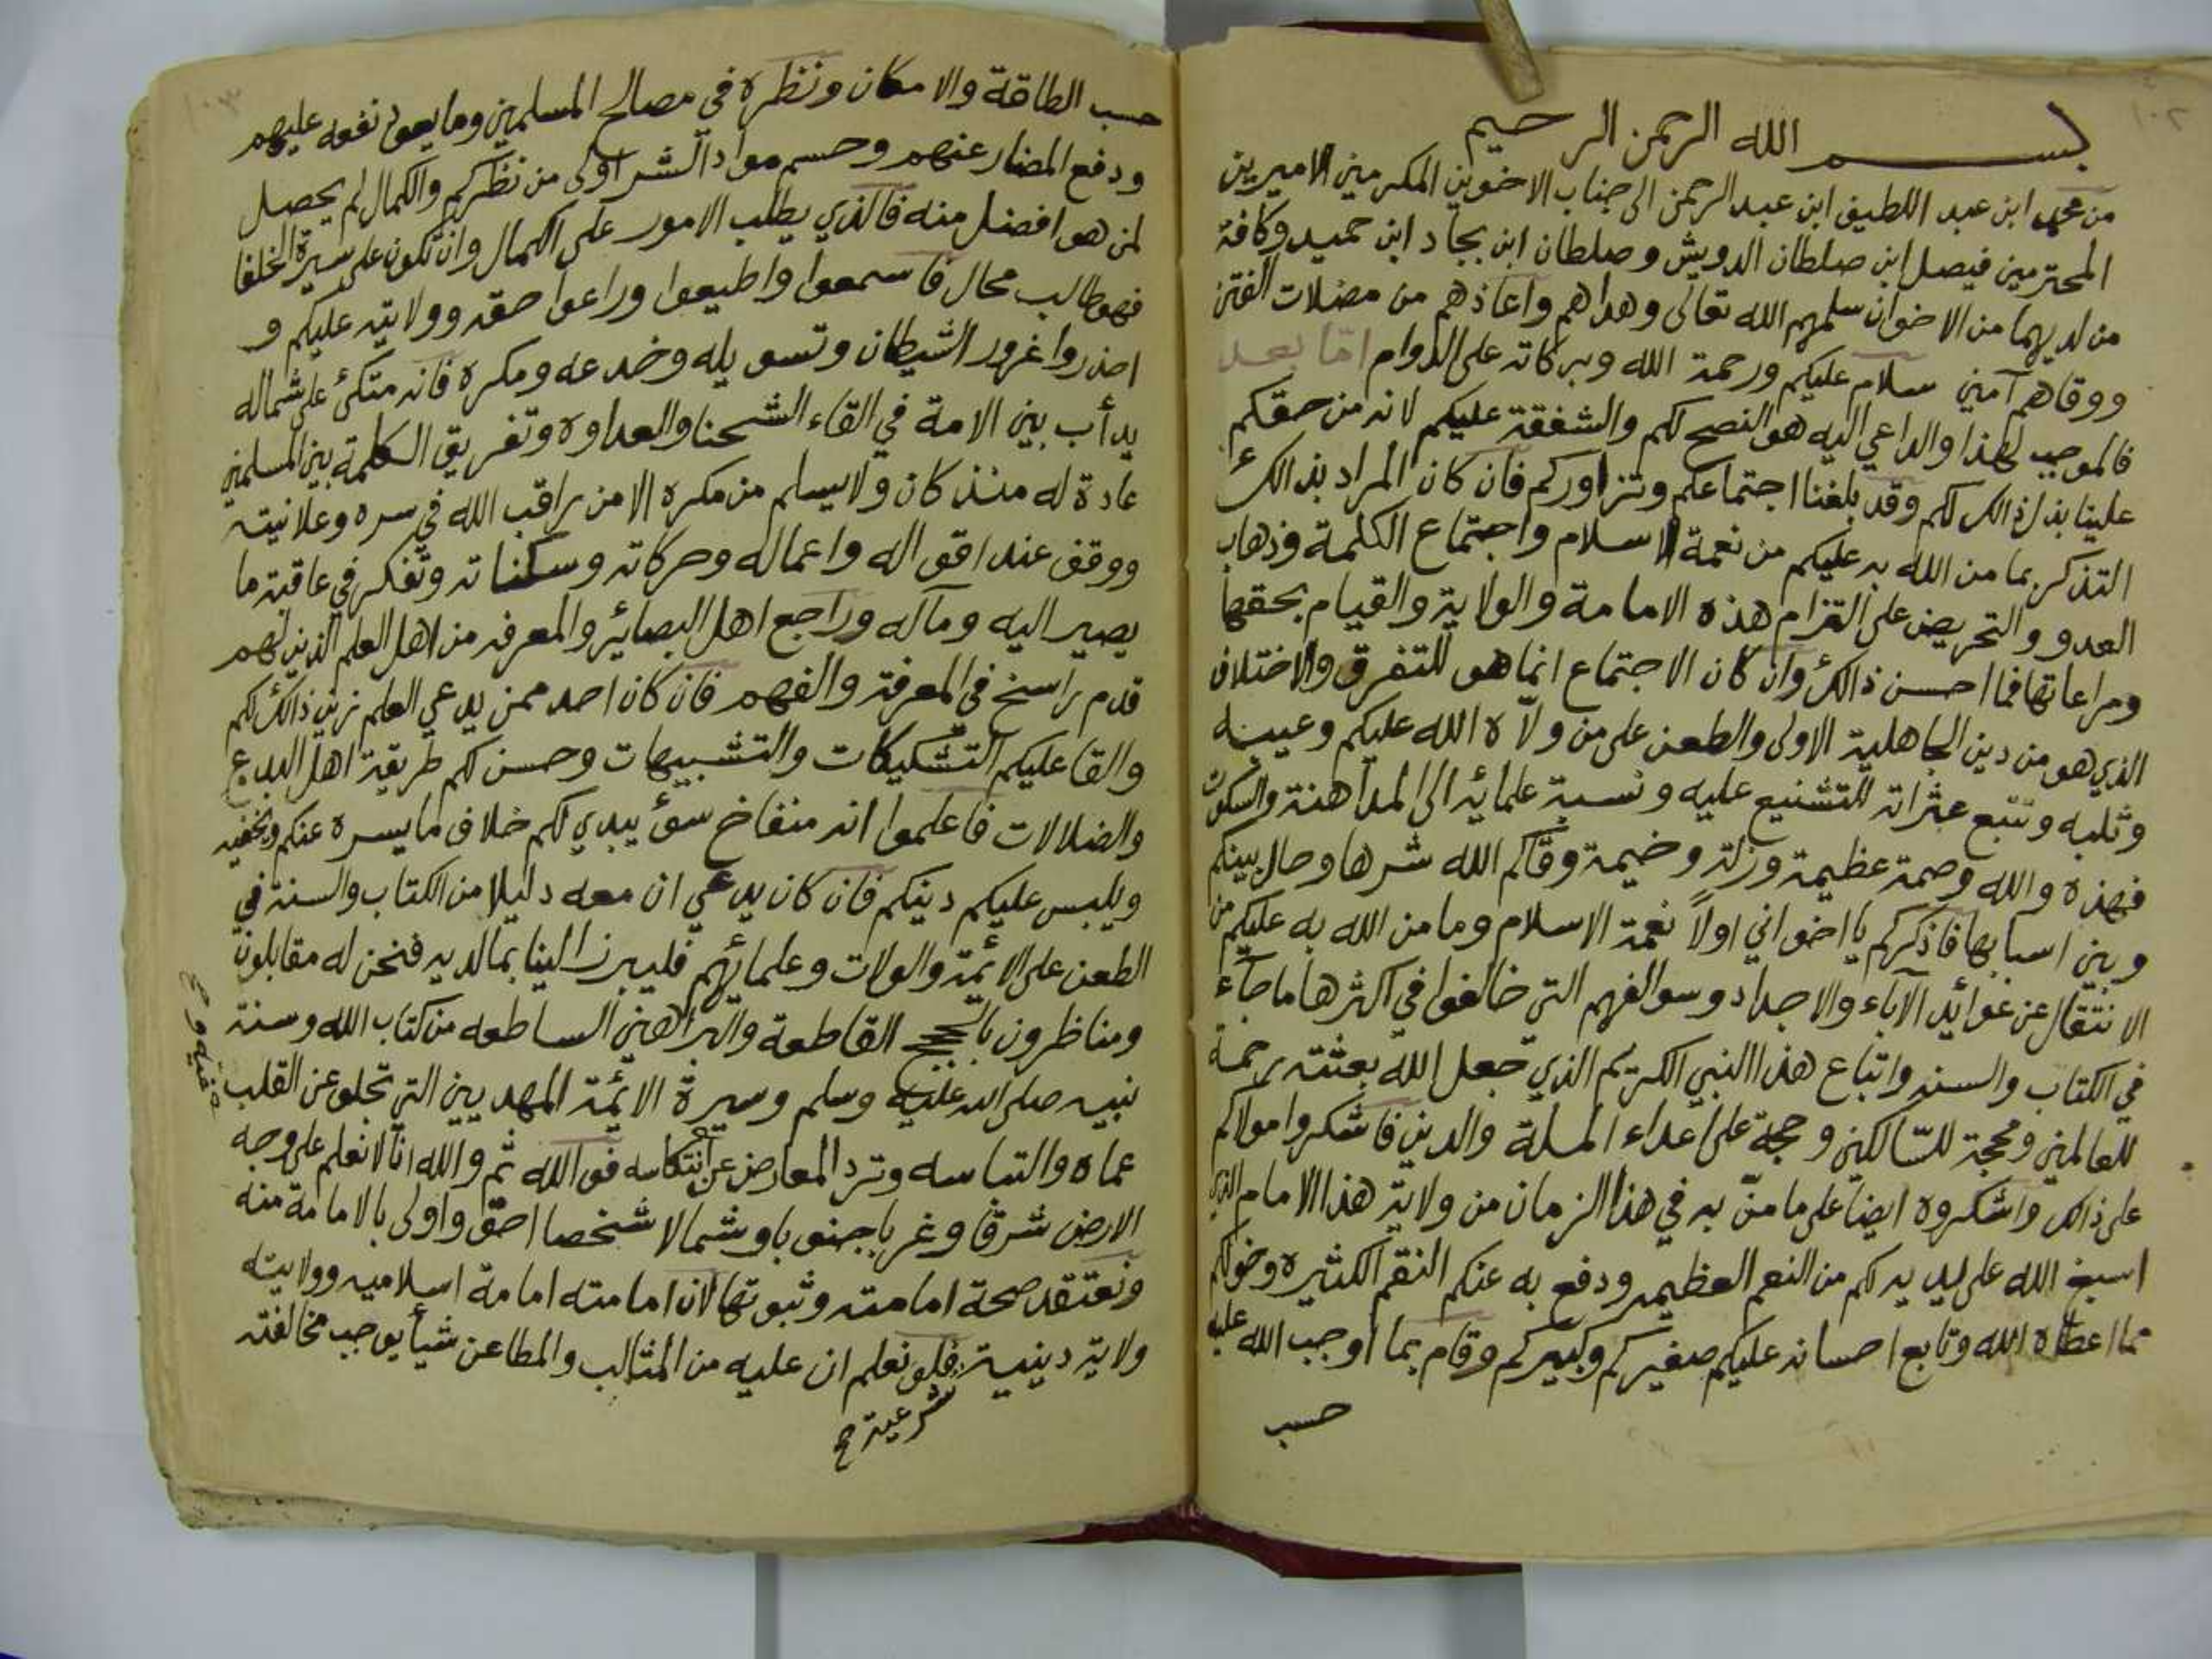 ١٠٢
بسم الله الرحمن الرحيم
من محمد ابن عبد اللطيف ابن عبد الرحمن الى جناب الاخوين المكرمين الاميرين
المحترمين فيصل ابن صلطان الدويش وصلطان ابن بجاد ابن حميد وكافة
من لديهما من الاخوان سلمهم الله تعالى وهداهم واعاذهم من مضلات الفتن
ووقاهم آمين سلام عليكم ورحمة الله وبركاته على الدوام امّا بعد
فالموجب لهذا والداعي اليه هو النصح لكم والشفقة عليكم لانه من حقكم
علينا بذل ذالك لكم وقد بلغنا اجتماعكم وتزاوركم فان كان المراد بذالك
التذكر بما من الله به عليكم من نعمة الاسلام واجتماع الكلمة وذهاب
العدو والتحريض على التزام هذه الامامة والولاية والقيام بحقها
ومراعاتها فما احسن ذالك وان كان الاجتماع انما هو للتفرق والاختلاف
الذي هو من دين الجاهلية الاولى والطعن على من ولّاه الله عليكم وعيبه
وثلبه وتتبع عثراته للتشنيع عليه ونسبة علمائه الى المداهنة والسكوت
فهذه والله وصمة عظيمة وزلة وخيمة وقاكم الله شرها وحال بينكم
وبين اسبابها فاذكركم يا اخواني اولاً نعمة الاسلام وما من الله به عليكم من
الانتقال عن عوائد الآباء والاجداد وسوالفهم التي خالفوا في اكثرها ما جآء
في الكتاب والسنه واتباع هذا النبي الكريم الذي جعل الله بعثته رحمة
للعالمين ومحجة للسّالكين وحجة على اعداء الملة والدين فاشكروا مولاكم
على ذالك واشكروه ايضا على ما منّ به في هذا الزمان من ولاية هذا الامام الذي
اسبغ الله على يديه لكم من النعم العظيمه ودفع به عنكم النقم الكثيره وخولكم
مما اعطاه الله وتابع احسانه عليكم صغيركم وكبيركم وقام بما اوجب الله عليه
حسب
١٠٣
حسب الطاقة والامكان ونظره في مصالح المسلمين وما يعود نفعه عليهم
ودفع المضار عنهم وحسم مواد الشر اولى من نظركم والكمال لم يحصل
لمن هو افضل منه فالذي يطلب الامور على الكمال وان تكون على سيرة الخلفا
فهو طالب محال فاسمعوا واطيعوا وراعوا حقه وولايته عليكم و
احذروا غرور الشيطان وتسويله وخدعه ومكره فانه متكئ على شماله
يدأب بين الامة في القاء الشحنا والعداوه وتفريق الكلمة بين المسلمين
عادة له منذ كان ولا يسلم من مكره الا من راقب الله في سره وعلانيته
ووقف عند اقواله واعماله وحركاته وسكناته وتفكر في عاقبة ما
يصير اليه ومآله وراجع اهل البصائر والمعرفه من اهل العلم الذين لهم
قدم راسخ في المعرفة والفهم فان كان احد ممن يدعي العلم زين ذالك لكم
والقا عليكم التشكيكات والتشبيهات وحسن لكم طريقة اهل البدع
والضلالات فاعلموا انه منفاخ سوء يبدي لكم خلاف ما يسره عنكم ويخفيه
ويلبس عليكم دينكم فان كان يدعي ان معه دليلا من الكتاب والسنة في
الطعن على الائمة والولات وعلمائهم فليبرز الينا بما لديه فنحن له مقابلون
ومناظرون بالحجج القاطعة والبراهين الساطعه من كتاب الله وسنة
نبيه صلى الله عليه وسلم وسيرة الائمة المهديين التي تجلو عن القلب
عماه والتباسه وترد المعارض عن انتكاسه فو الله ثم والله انا لا نعلم على وجه
الارض شرقا وغربا جنوبا وشمالا شخصا احق واولى بالامامة منه
ونعتقد صحة امامته وثبوتها لان امامته امامة اسلاميه وولايته
ولاية دينية فلو نعلم ان عليه من المثالب والمطاعن شيأ يوجب مخالفته
شرعية ح